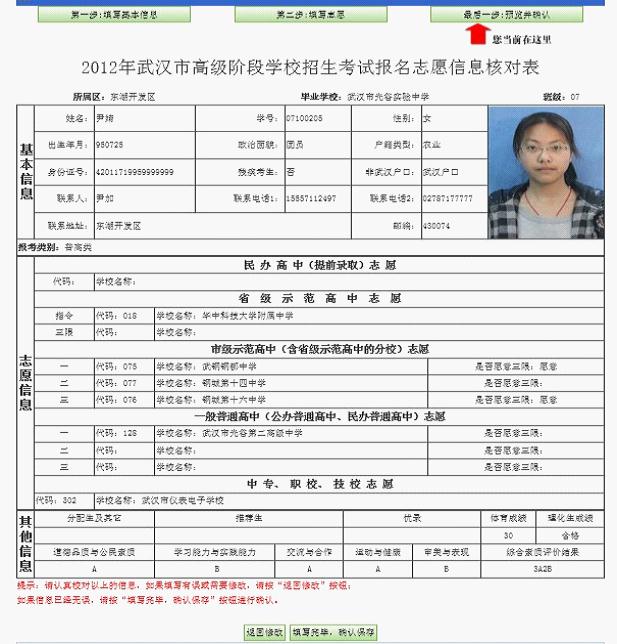 第一步:填写基本信息 第二步:填写志愿 最后一步:预览并确认
您当前在这里
2012年武汉市高级阶段学校招生考试报名志愿信息核对表
所属区：东湖开发区 毕业学校：武汉市光谷实验中学 班级：07
基本信息
姓名： 学号：07100205 性别：女
出生年月：950725 政治面貌：团员 户籍类型：农业
身份证号：42011719959999999 残疾考生：否 非武汉户口：武汉户口
联系人：尹加 联系电话1：15557112497 联系电话2：02787177777
联系地址：东湖开发区 邮编：430074
报考类别：普高类
志愿信息
民办高中（提前录取）志愿
代码： 学校名称：
省级示范高中志愿
指令 代码：018 学校名称：华中科技大学附属中学
三限 代码： 学校名称：
市级示范高中（含省级示范高中的分校）志愿
一 代码：075 学校名称：武钢钢都中学 是否愿意三限：愿意
二 代码：077 学校名称：钢城第十四中学 是否愿意三限：
三 代码：076 学校名称：钢城第十六中学 是否愿意三限：愿意
一般普通高中（公办普通高中、民办普通高中）志愿
一 代码：128 学校名称：武汉市光谷第二高级中学 是否愿意三限：
二 代码： 学校名称： 是否愿意三限：
三 代码： 学校名称： 是否愿意三限：
中专、职校、技校志愿
代码：302 学校名称：武汉市仪表电子学校
其他信息
分配生及其它 推荐生 优录 体育成绩 理化生成绩
30 合格
道德品质与公民素质 学习能力与实践能力 交流与合作 运动与健康 审美与表现 综合素质评价结果
A B A A B 3A2B
提示：请认真校对以上的信息，如果填写有误或需要修改，请按“返回修改”按钮；
如果信息已经无误，请按“填写完毕，确认保存”按钮进行确认。
返回修改 填写完毕，确认保存